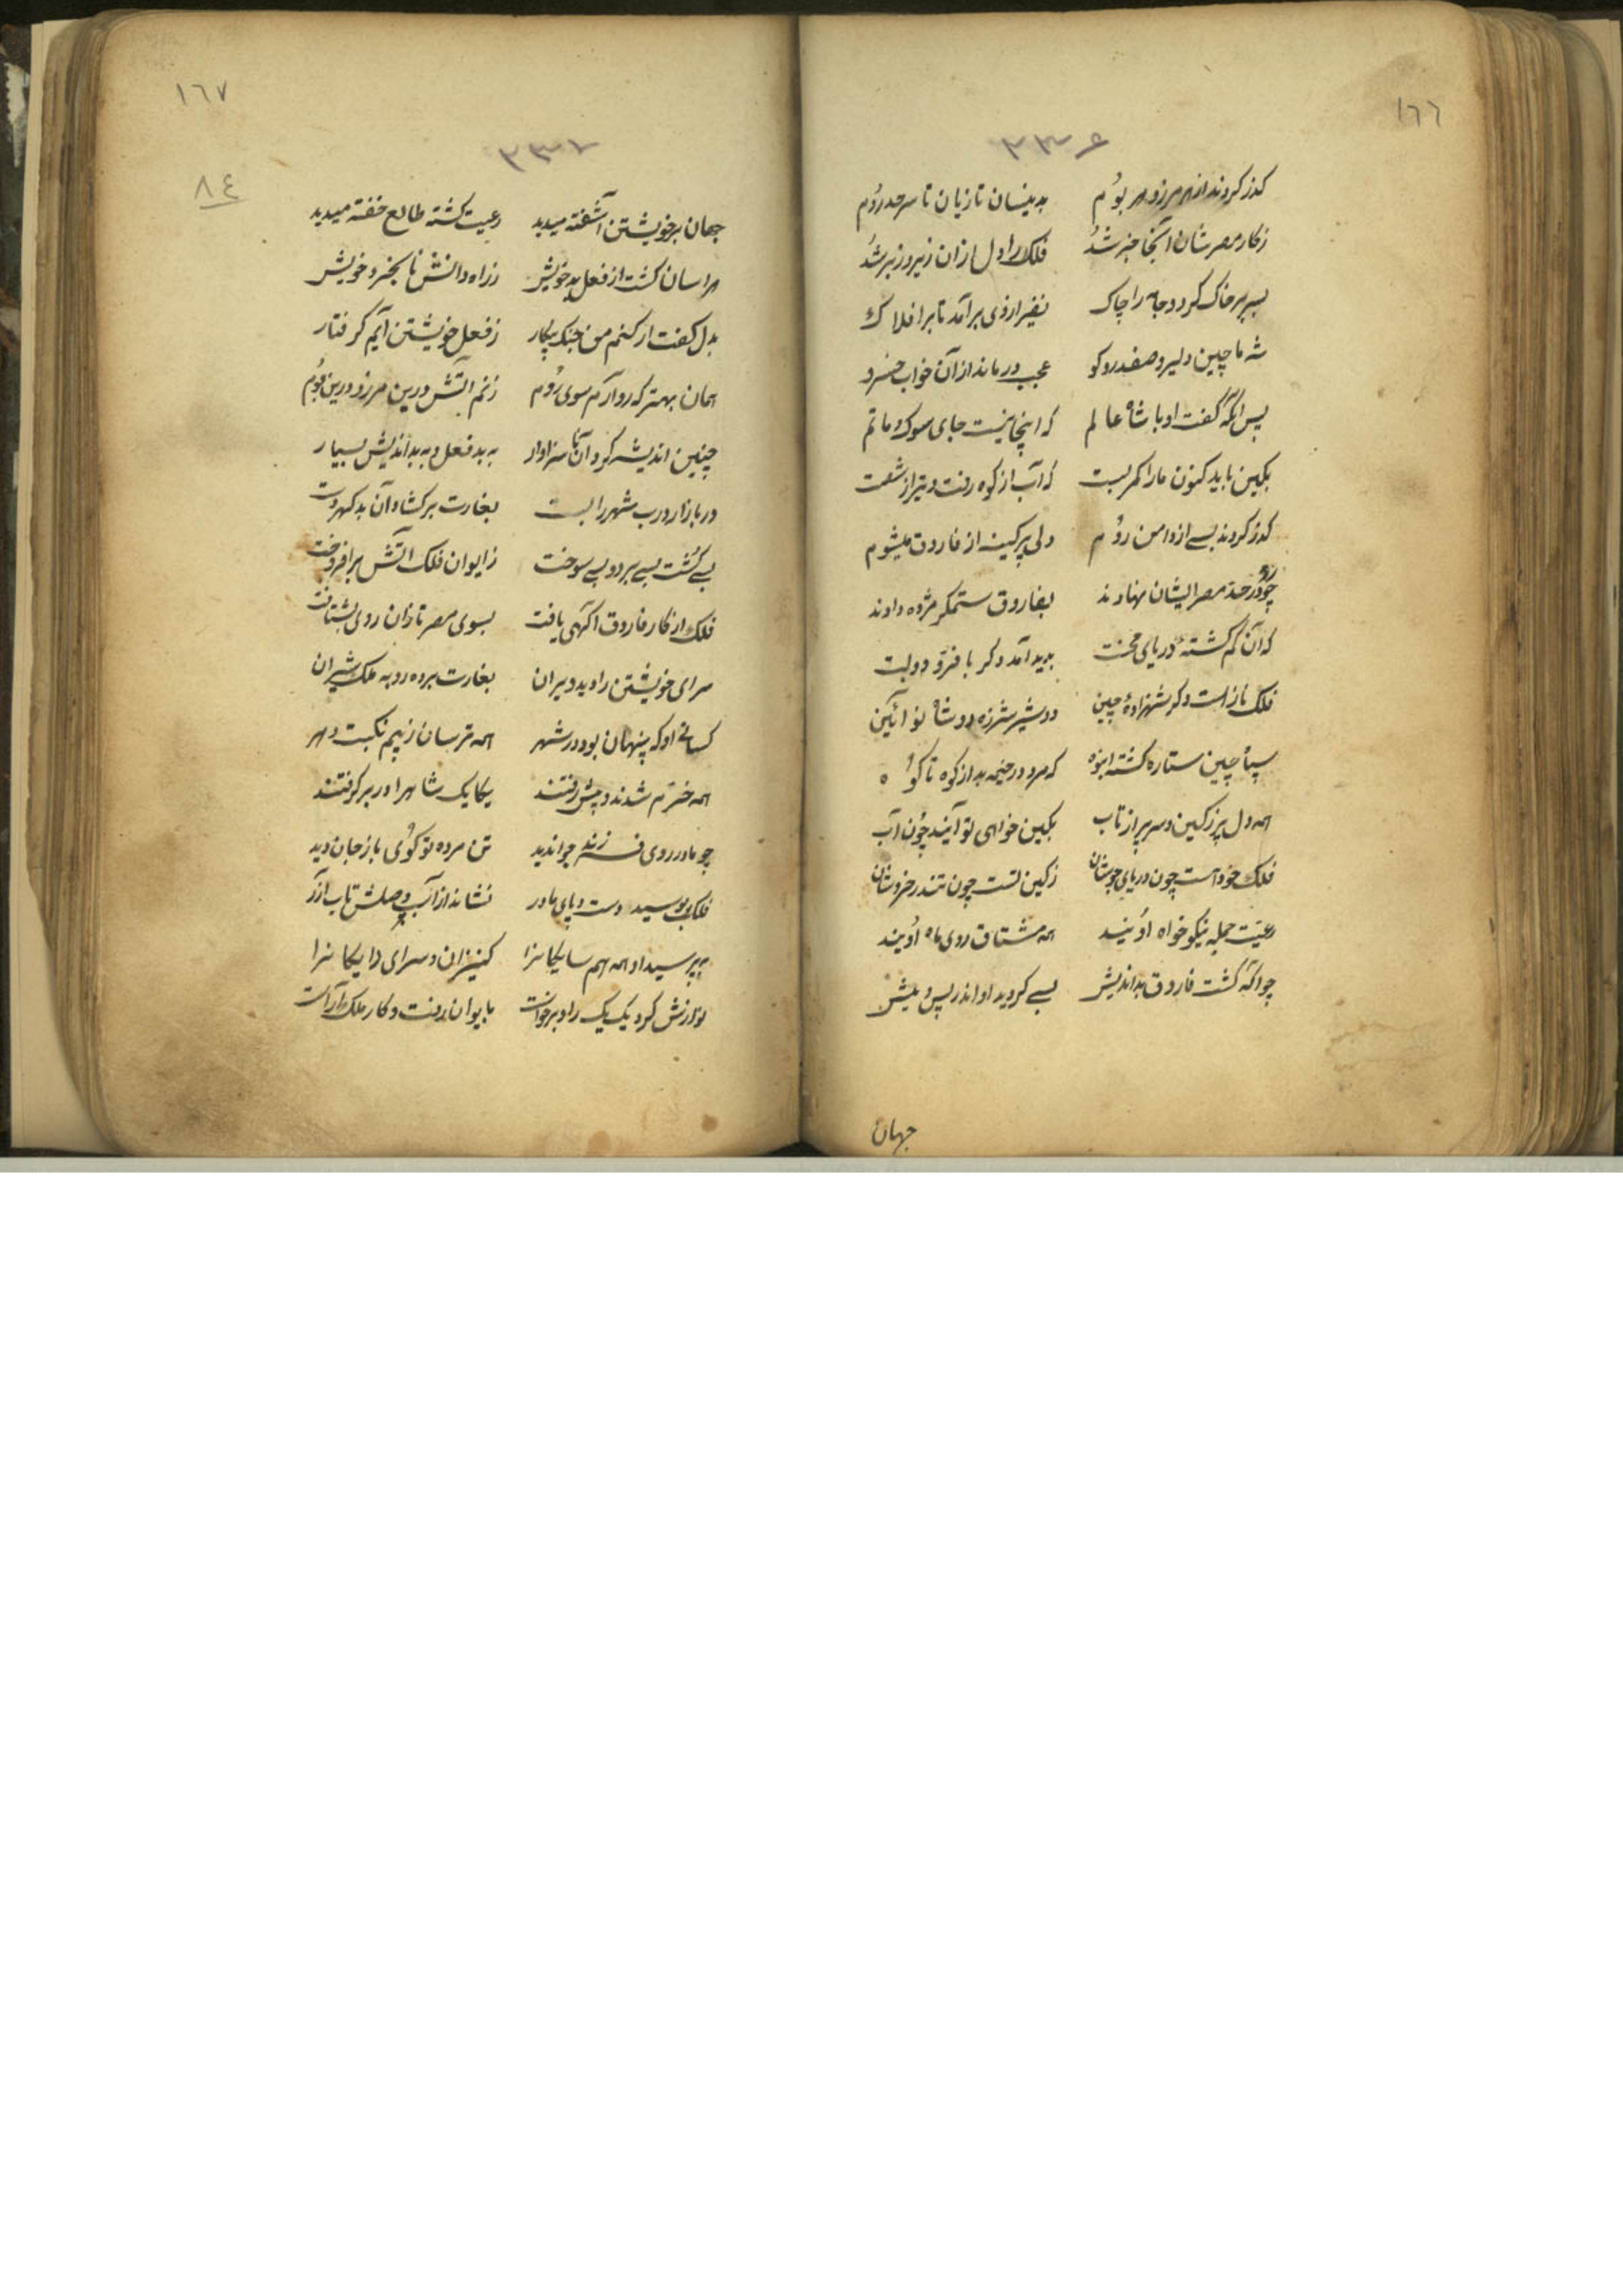 ١٦٦
٢٣۶
کذر کردند از هر مرز و هر بوم بدینسان تازیان تا سرحد روم
ز کار مصر شان آنجا خبر شد فلک را دل ازان زیر و زبر شد
بسر بر خاک کرد و جامه را چاک نفیر از وی برآمد تا بر افلاک
شه ماچین دلیر و صفدر و کو عجب درماند از آن خواب خسرو
پس آنکه گفت او با شاه عالم که اینجا نیست جای سوک و ماتم
بکین باید کنون ما را کمر بست که آب از کوه رفت و تیر از شست
کذر کردند بسے از دامن روم ولی پر کینه از فاروق میشوم
چو در حد مصر ایشان رو نهادند بفاروق ستمکر مژده دادند
که آن کم کشتهٔ دریای محنت پدید آمد دکر با فر و دولت
فلک ناز است دکر شهزادهٔ چین دو شیر شرزه دو شاه نو آئین
سپاه چین ستاره کشته انبوه که مرد و خیمه بد از کوه تا کوه
همه دل پر ز کین و سر پر از تاب بکین خواهی تو آیند چون آب
فلک خود هست چون دریای جوشان ز کین تست چون تندر خروشان
رعیت جمله نیکو خواه اویند همه مشتاق روی ماه اویند
چو آکه کشت فاروق بد اندیش بسے کردید او اندر پس و پیش
جهان
١٦٧
٢٣٧
٨٤
جهان بر خویشتن آشفته میدید رعیت کشته طالع خفته میدید
هراسان کشت از فعل بد خویش ز راه دانش نابخرد خویش
بدل کفت ار کنم من جنک و پیکار ز فعل خویشتن آیم کرفتار
همان بهتر که رو آرم سوی روم زنم آتش درین مرز و درین بوم
چنین اندیشه کرد آن ناسزاوار به بد فعل و به بد اندیش بسیار
در بازار و درب شهر را بست بغارت برکشاد آن بد کهر دست
بسے کشت بسے برد و بسے سوخت ز ایوان فلک آتش برافروخت
فلک از کار فاروق آکهی یافت بسوی مصر تازان روی بشتافت
سرای خویشتن را دید ویران بغارت برده روبه ملک شیران
کسانے او که پنهان بود در شهر همه ترسان ز بیم نکبت دهر
همه خرم شدند و پیش رفتند یکایک شاه را در بر کرفتند
چو مادر روی فرزند جوان دید تن مرده تو کوئی باز جان دید
فلک بوسید دست و پای مادر نشاند از آب وصلش تاب آذر
بپرسید او همه همسایکانرا کنیزان و سرای دایکانرا
نوازش کرد یک یک را و برخواست بایوان رفت و کار ملک آراست